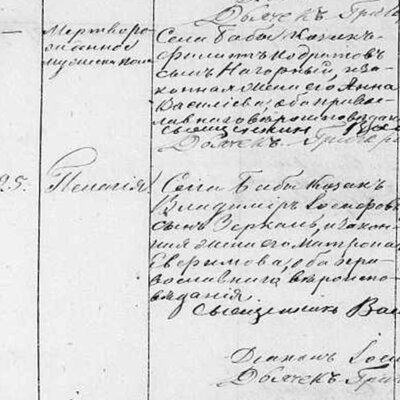 Дьячекъ Григо
— Мертворо-
жденное
мужеска пола
Села Бабы Козакъ
Филипъ Кодратовъ
сынъ Нагорный, и за-
конная жена его Анна
Василіева, оба право-
славнаго вѣроисповѣданія
Священник
Дьячекъ Григор
25. Пелагія
Села Бабы Козакъ
Владиміръ Іосифовъ
сынъ Зеркаль, и закон-
ная жена его Матрона
Евфимова, оба пра-
вославнаго вѣроиспо-
вѣданія.
Священникъ Вас
Діаконъ Іоси
Дьячекъ Григ